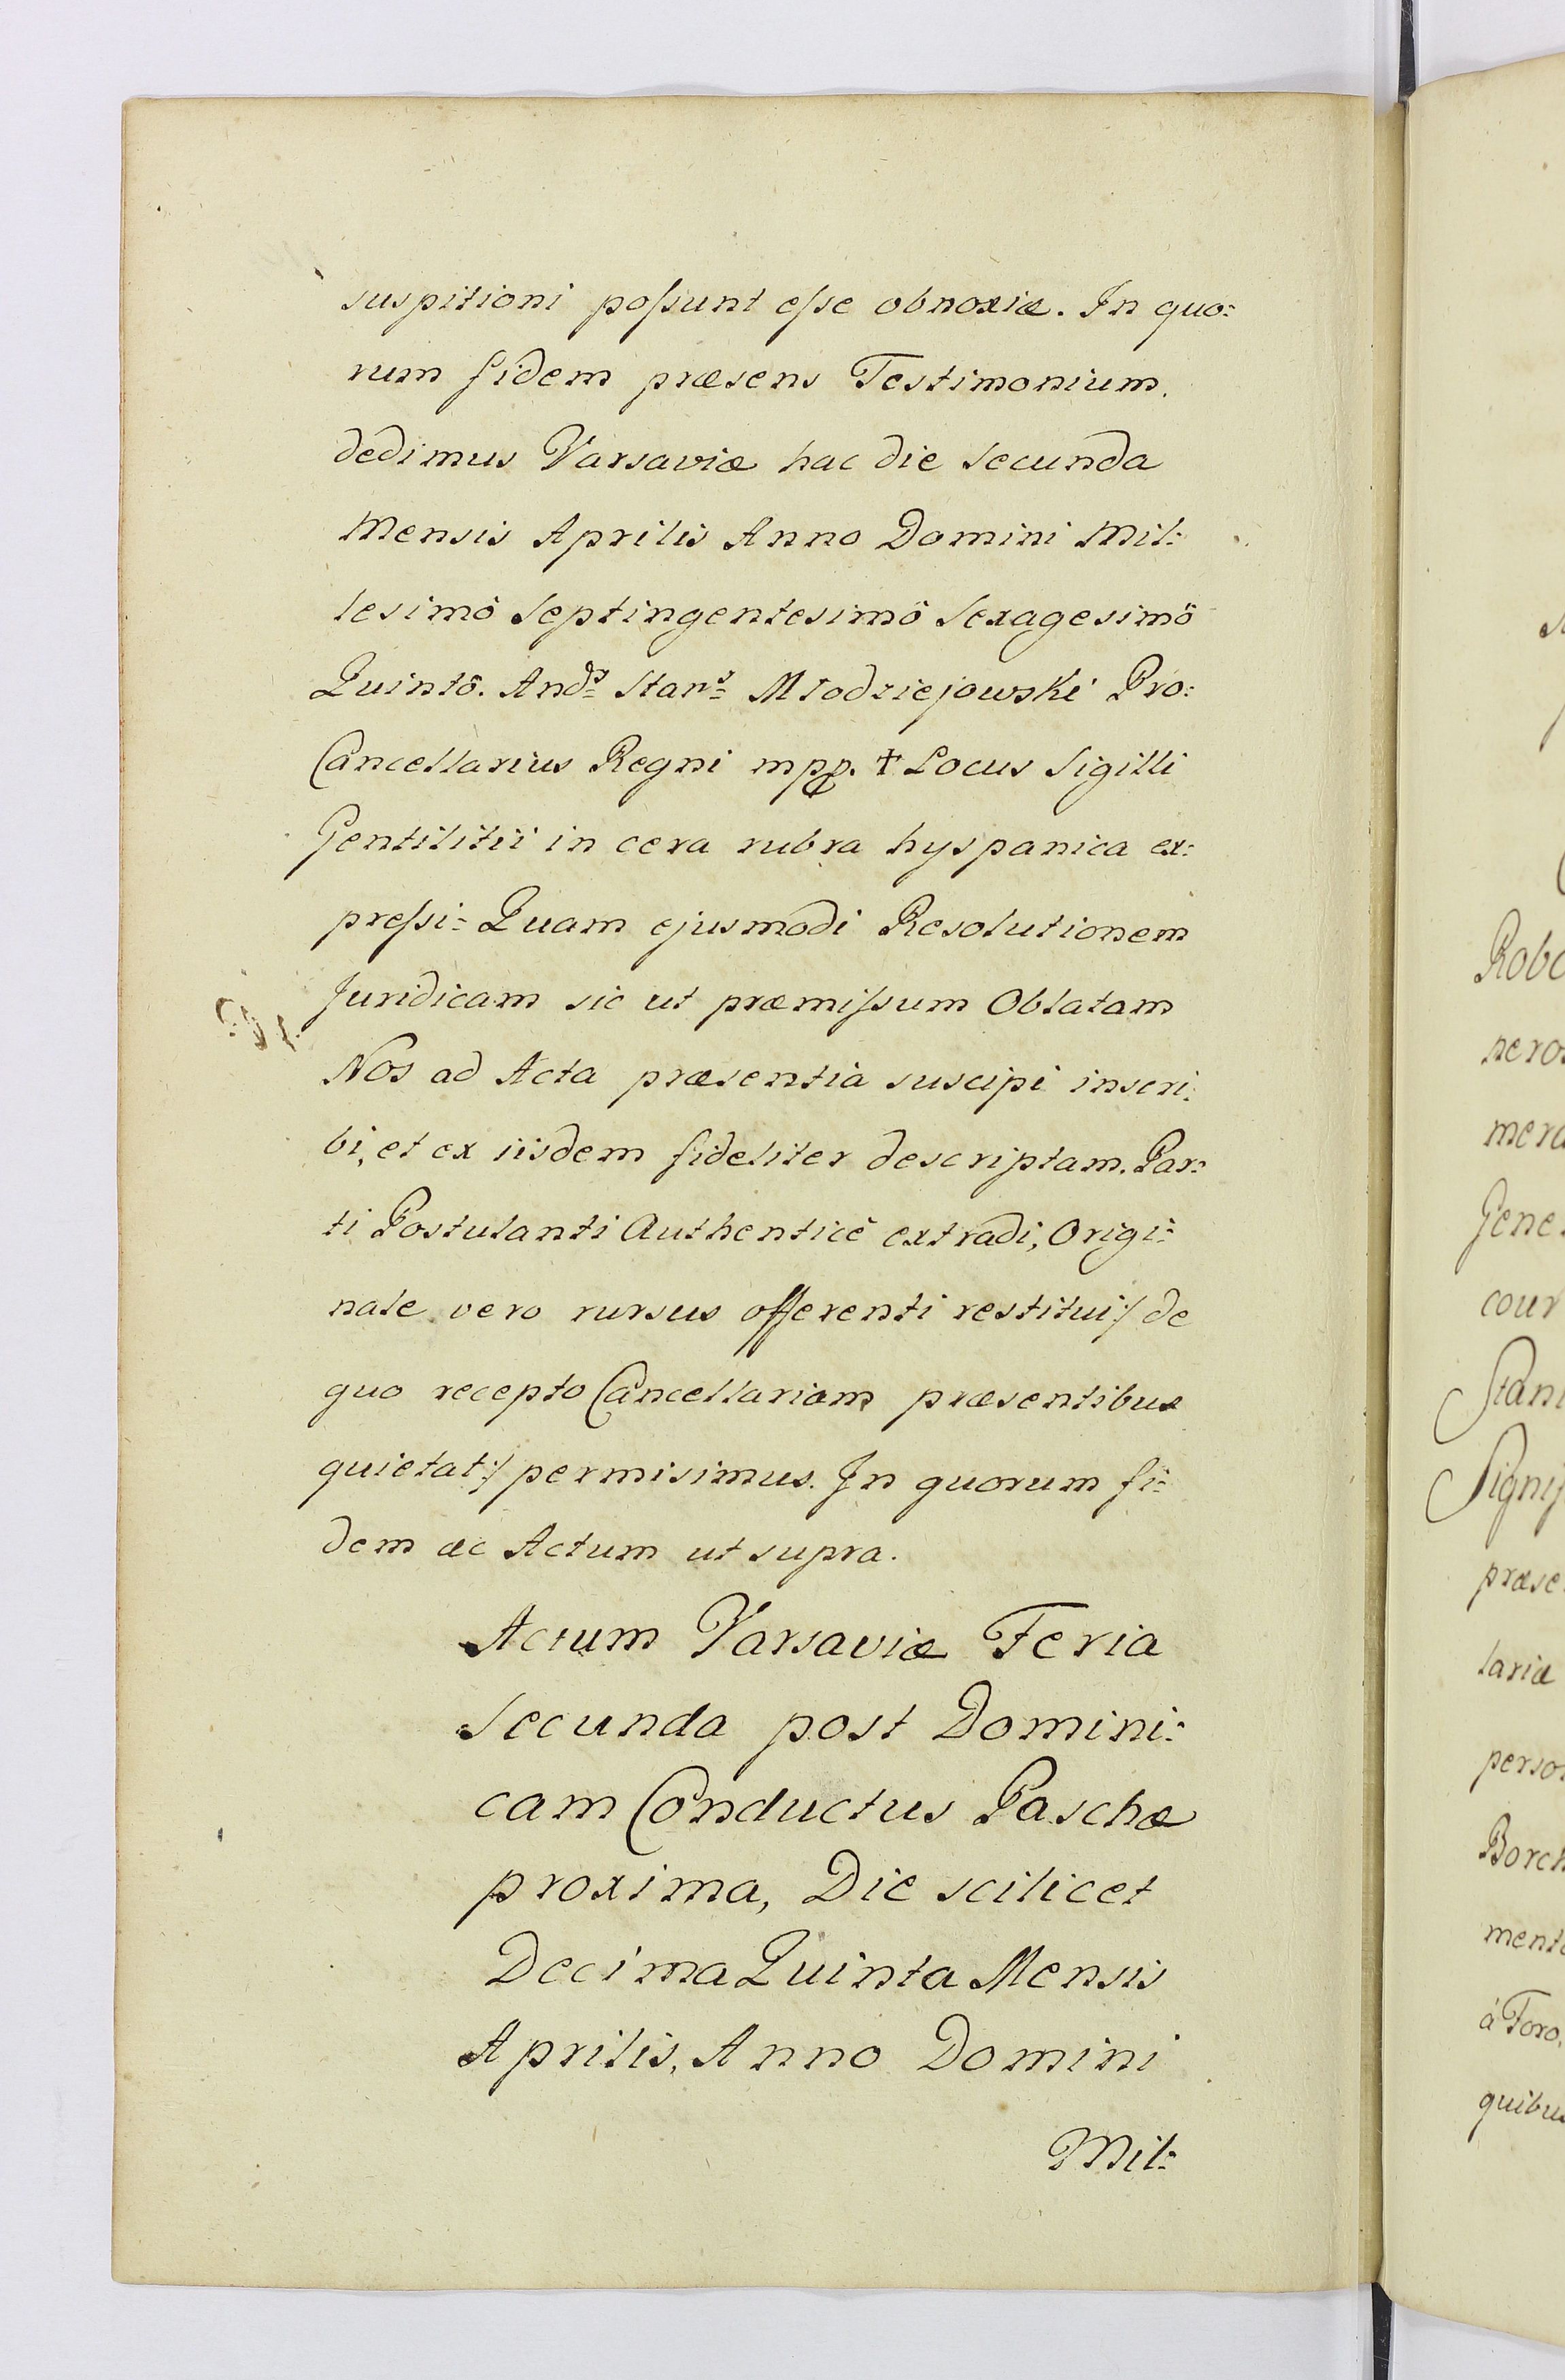 suspitioni poſsunt eſse obnoxiæ. In quo:
rum fidem præsens Testimonium
dedimus Varsaviæ hac die Secunda
Mensis Aprilis Anno Domini Mil:
lesimô Septingentesimô Sexagesimô
Quintô. Andr. Stans. Młodziejowski Pro:
Cancellarius Regni mpp. † Locus Sigilli
Gentilitii in cera rubra hyspanica ex:
preſsi: Quam ejusmodi Resolutionem
Juridicam sic ut præmiſsum Oblatam
Nos ad Acta præsentia suscipi inscri:
bi, et ex iisdem fideliter descriptam Par:
ti Postulanti Authenticè extradi, Origi:
nale vero rursus offerenti restitui :/ de
quo recepto Cancellariam præsentibus
quietat :/ permisimus. In quorum fi:
dem ac Actum ut supra.
Actum Varsaviæ Feria
Secunda post Domini:
cam Conductus Paschæ
proxima, Die scilicet
Decima Quinta Mensis
Aprilis, Anno Domini
Mil:
Robo
nero
mera
Gene
cour
Stani
Signi
præse
lariæ
perso
Borch
mento
à Toro
quibu